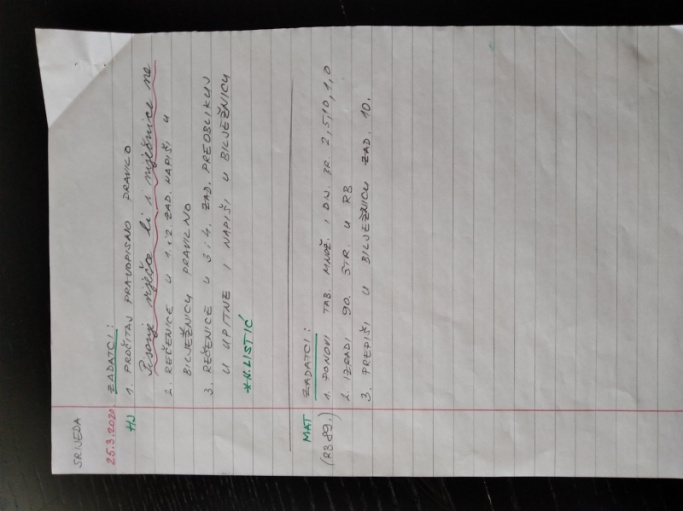 SRIJEDA
25.3.2020. ZADATCI:
HJ 1. PROČITAJ PRAVOPISNO PRAVILO
Pisanje riječce li i niječnice ne
2. REČENICE U 1. i 2. ZAD. NAPIŠI U
BILJEŽNICU PRAVILNO
3. REČENICE U 3. i 4. ZAD. PREOBLIKUJ
U UPITNE I NAPIŠI U BILJEŽNICU
*R.LISTIĆ
MAT ZADATCI:
(RB 89.) 1. PONOVI TAB. MNOŽ. I DIJ. BR. 2, 5, 10, 1, 0
2. IZRADI 90. STR. U RB
3. PREPIŠI U BILJEŽNICU ZAD. 10.